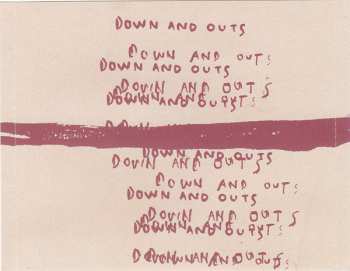 DOWN AND OUTS
DOWN AND OUTS
DOWN AND OUTS
DOWN AND OUTS
DOWN AND OUTS
DOWN AND OUTS
DOWN AND OUTS
DOWN AND OUTS
DOWN AND OUTS
DOWN AND OUTS
DOWN AND OUTS
DOWN AND OUTS